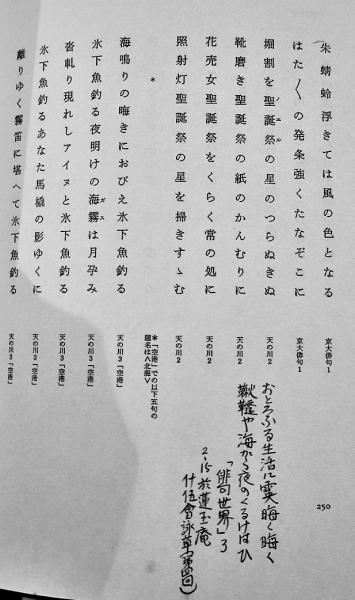 朱蜻蛉浮きては風の色となる 京大俳句1
はた〳〵の発条強くたなぞこに 京大俳句1
堀割を聖誕祭の星のつらぬきぬ 天の川2
ノエル
靴磨き聖誕祭の紙のかんむりに 天の川2
花売女聖誕祭をくらく常の処に 天の川2
照射灯聖誕祭の星を掃きすゝむ 天の川2
*
*「空港」での以下五句の
題名は〈北海〉
海鳴りの晦きにおびえ氷下魚釣る 天の川3「空港」
氷下魚釣る夜明けの海霧は月孕み 天の川3「空港」
ガス
沓軋り現れしアイヌと氷下魚釣る 天の川3「空港」
氷下魚釣るあなた馬橇の影ゆくに 天の川3「空港」
離りゆく霧笛に堪へて氷下魚釣る 天の川3「空港」
おとろふる生活に雲晦く晦く
鞦韆や海から夜のくるけはひ
「俳句世界」3
2・15於蓮玉庵
什伍會詠草(第四回)
250